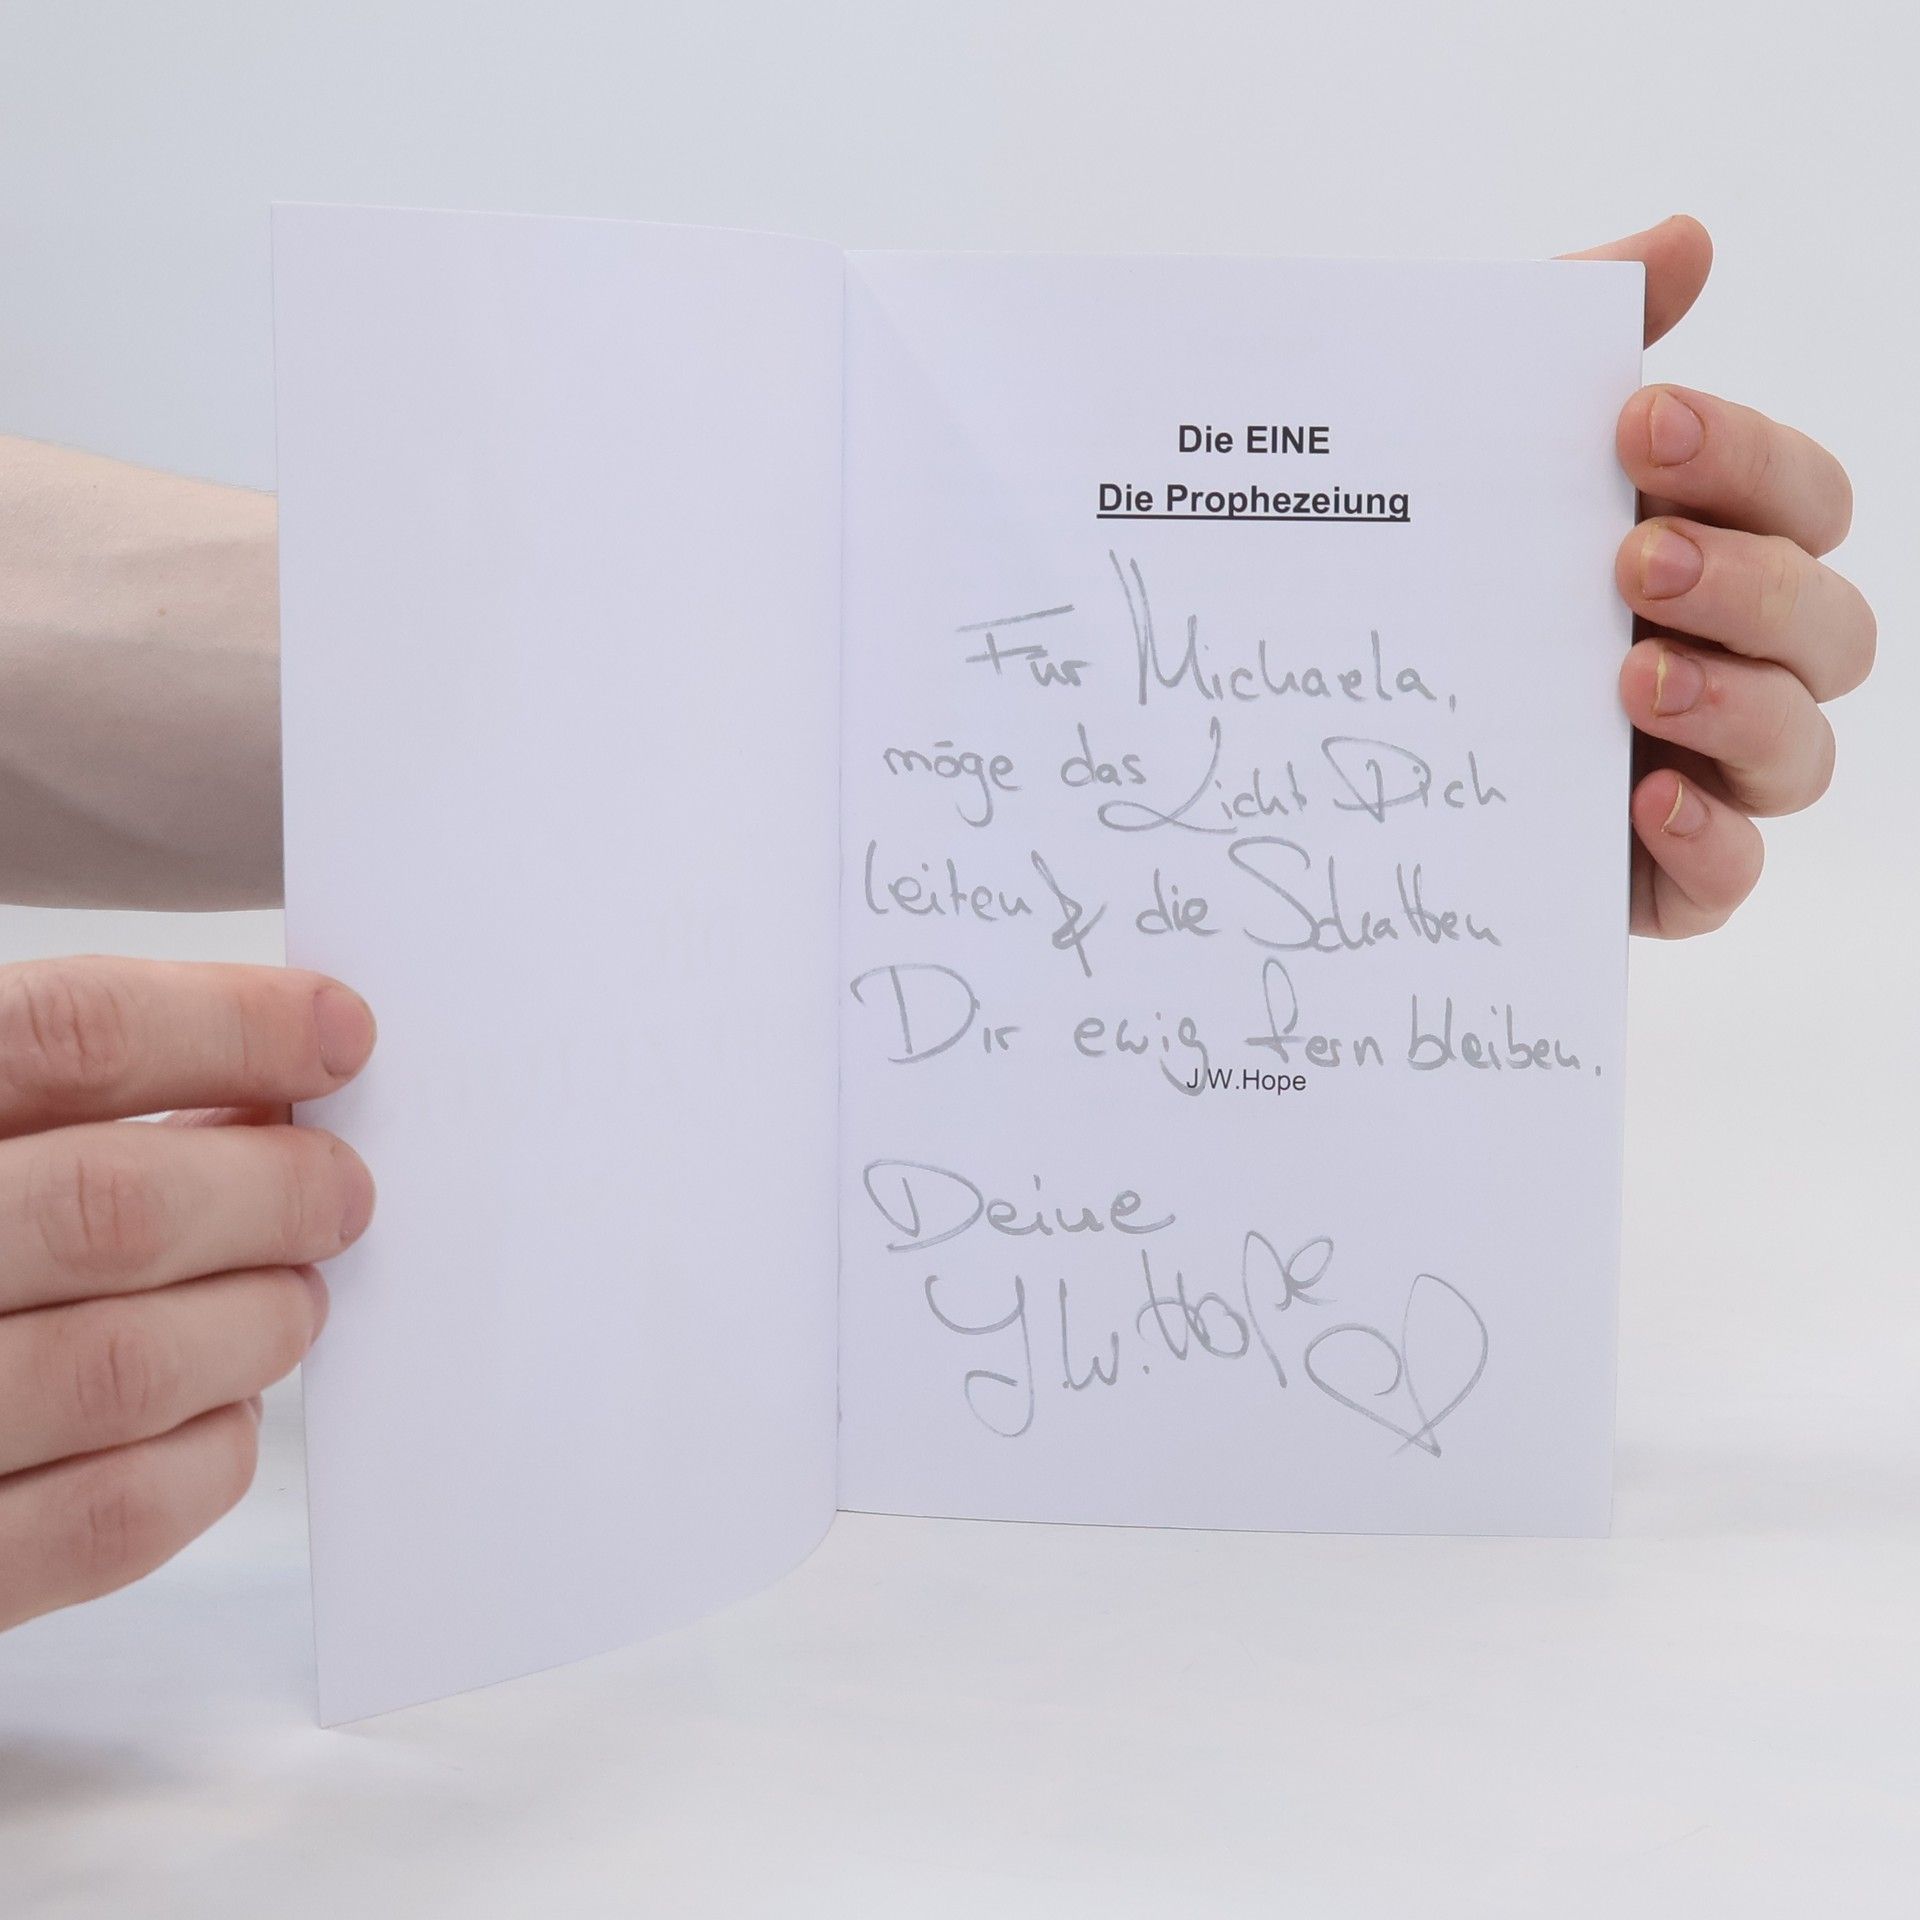 Die EINE
Die Prophezeiung
Für Michaela,
möge das Licht Dich
leiten & die Schatten
Dir ewig fern bleiben.
J.W.Hope
Deine
J.W.Hope